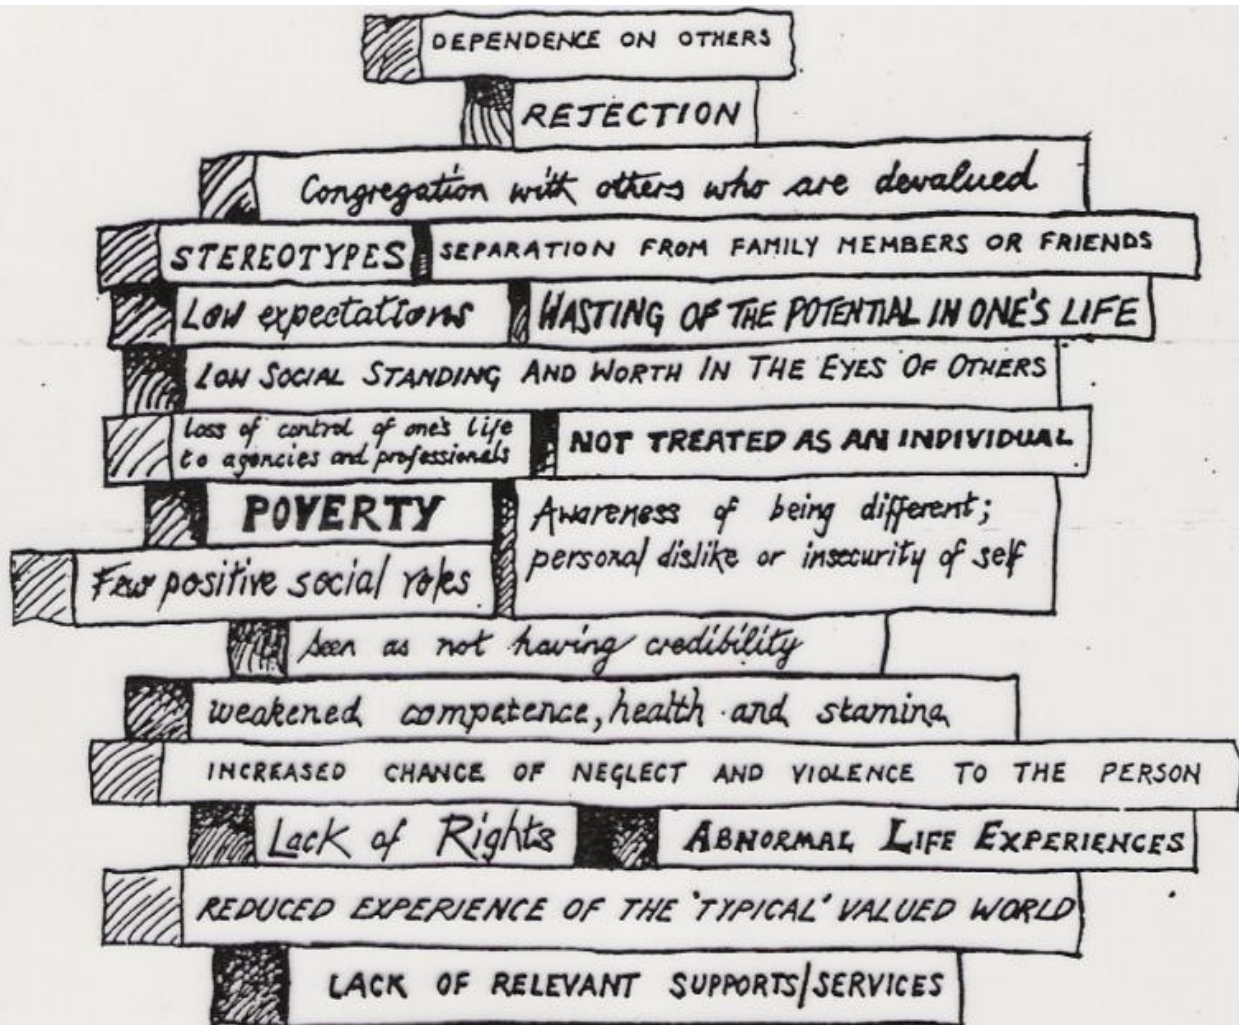 DEPENDENCE ON OTHERS
REJECTION
Congregation with others who are devalued
STEREOTYPES
SEPARATION FROM FAMILY MEMBERS OR FRIENDS
Low expectations
WASTING OF THE POTENTIAL IN ONE'S LIFE
LOW SOCIAL STANDING AND WORTH IN THE EYES OF OTHERS
Loss of control of one's life
to agencies and professionals
NOT TREATED AS AN INDIVIDUAL
POVERTY
Awareness of being different;
personal dislike or insecurity of self
Few positive social roles
Seen as not having credibility
weakened competence, health and stamina
INCREASED CHANCE OF NEGLECT AND VIOLENCE TO THE PERSON
Lack of Rights
ABNORMAL LIFE EXPERIENCES
REDUCED EXPERIENCE OF THE 'TYPICAL' VALUED WORLD
LACK OF RELEVANT SUPPORTS/SERVICES